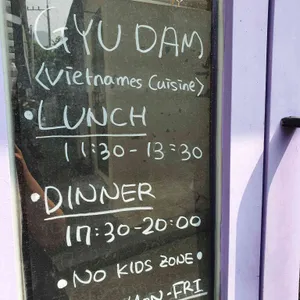 GYU DAM
<Vietnames Cuisine>
• LUNCH
11:30-13:30
• DINNER
17:30-20:00
• NO KIDS ZONE •
MON-FRI